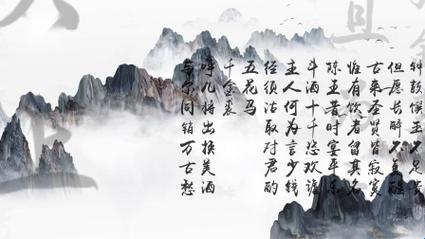 钟鼓馔玉不足贵
但愿长醉不复醒
古来圣贤皆寂寞
惟有饮者留其名
陈王昔时宴平乐
斗酒十千恣欢谑
主人何为言少钱
经须沽取对君酌
五花马
千金裘
呼儿将出换美酒
与尔同销万古愁